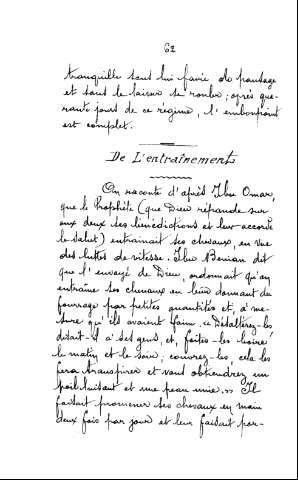 62
tranquille sans lui faire de pansage
et sans le laisser se rouler; après qua-
rante jours de ce régime, l'embonpoint
est complet.
De L'entraînement
On raconte d'après Ibn Omar,
que le Prophète (que Dieu répande sur
eux deux ses bénédictions et leur accorde
le salut) entrainait ses chevaux, en vue
des luttes de vitesse. Ibn Benian dit
que l'envoyé de Dieu, ordonnait qu'on
entraîne les chevaux en leur donnant du
fourrage par petites quantités et, à me-
sure qu'ils avaient faim, « Désaltérez-les
disait-il à ses gens, et, faites-les boire
le matin et le soir; couvrez-les, cela les
fera transpirer et vous obtiendrez un
poil luisant et une peau unie. » Il
faisait promener ses chevaux en main
deux fois par jour et leur faisait par-